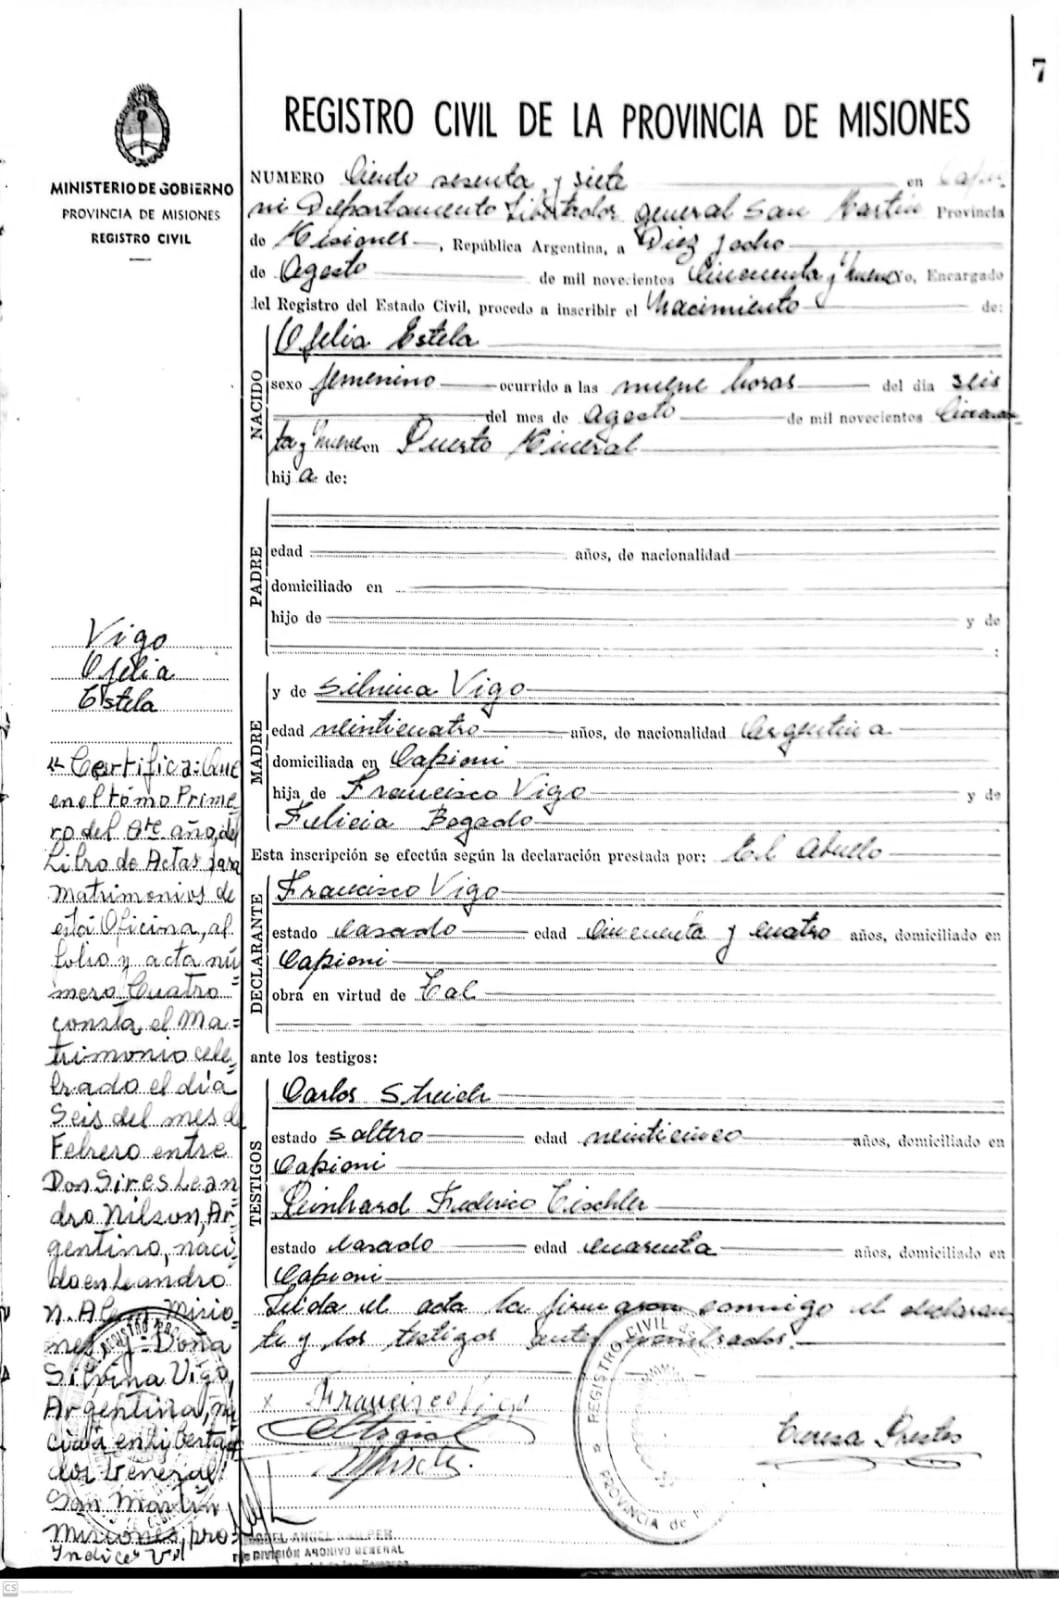 7
REGISTRO CIVIL DE LA PROVINCIA DE MISIONES
MINISTERIO DE GOBIERNO
PROVINCIA DE MISIONES
REGISTRO CIVIL
NUMERO Ciento sesenta y siete en Capio
ni Departamento Libertador general San Martin Provincia
de Misiones, República Argentina, a Diez y ocho
de Agosto de mil novecientos Cincuenta y nueve Yo, Encargado
del Registro del Estado Civil, procedo a inscribir el Nacimiento de:
NACIDO
Ofelia Estela
sexo femenino ocurrido a las nueve horas del día seis
del mes de Agosto de mil novecientos Cincuen
ta y nueve en Puerto Mineral
hija de:
PADRE
edad años, de nacionalidad
domiciliado en
hijo de y de
:
MADRE
y de Silvina Vigo
edad veinticuatro años, de nacionalidad Argentina
domiciliada en Capioni
hija de Francisco Vigo y de
Felicia Bogado
Esta inscripción se efectúa según la declaración prestada por: El Abuelo
DECLARANTE
Francisco Vigo
estado Casado edad Cincuenta y cuatro años, domiciliado en
Capioni
obra en virtud de Tal
ante los testigos:
TESTIGOS
Carlos Streich
estado Soltero edad veinticinco años, domiciliado en
Capioni
Reinhard Federico Tischler
estado Casado edad cuarenta años, domiciliado en
Capioni
Leida el acta la firmaron conmigo el declaran
te y los testigos antes nombrados.
x Francisco Vigo
Teresa Prestes
REGISTRO CIVIL
PROVINCIA de
Vigo
Ofelia
Estela
"Certifica: Que
en el tómo Prime
ro del año del
Libro de Actas para
Matrimonios de
está Oficina, al
folio y acta nú=
mero Cuatro
consta el Ma=
trimonio cele,
brado el día
Seis del mes de
Febrero entre
Don Sires Lean
dro Nilson, Ar-
gentino, naci-
do en Leandro
N. Alem Misio-
nes, y Doña
Silvina Vigo,
Argentina, na
cida en Liberta
dor General
San Martin
Misiones, pro-
DIVISIÓN ARCHIVO GENERAL
CS